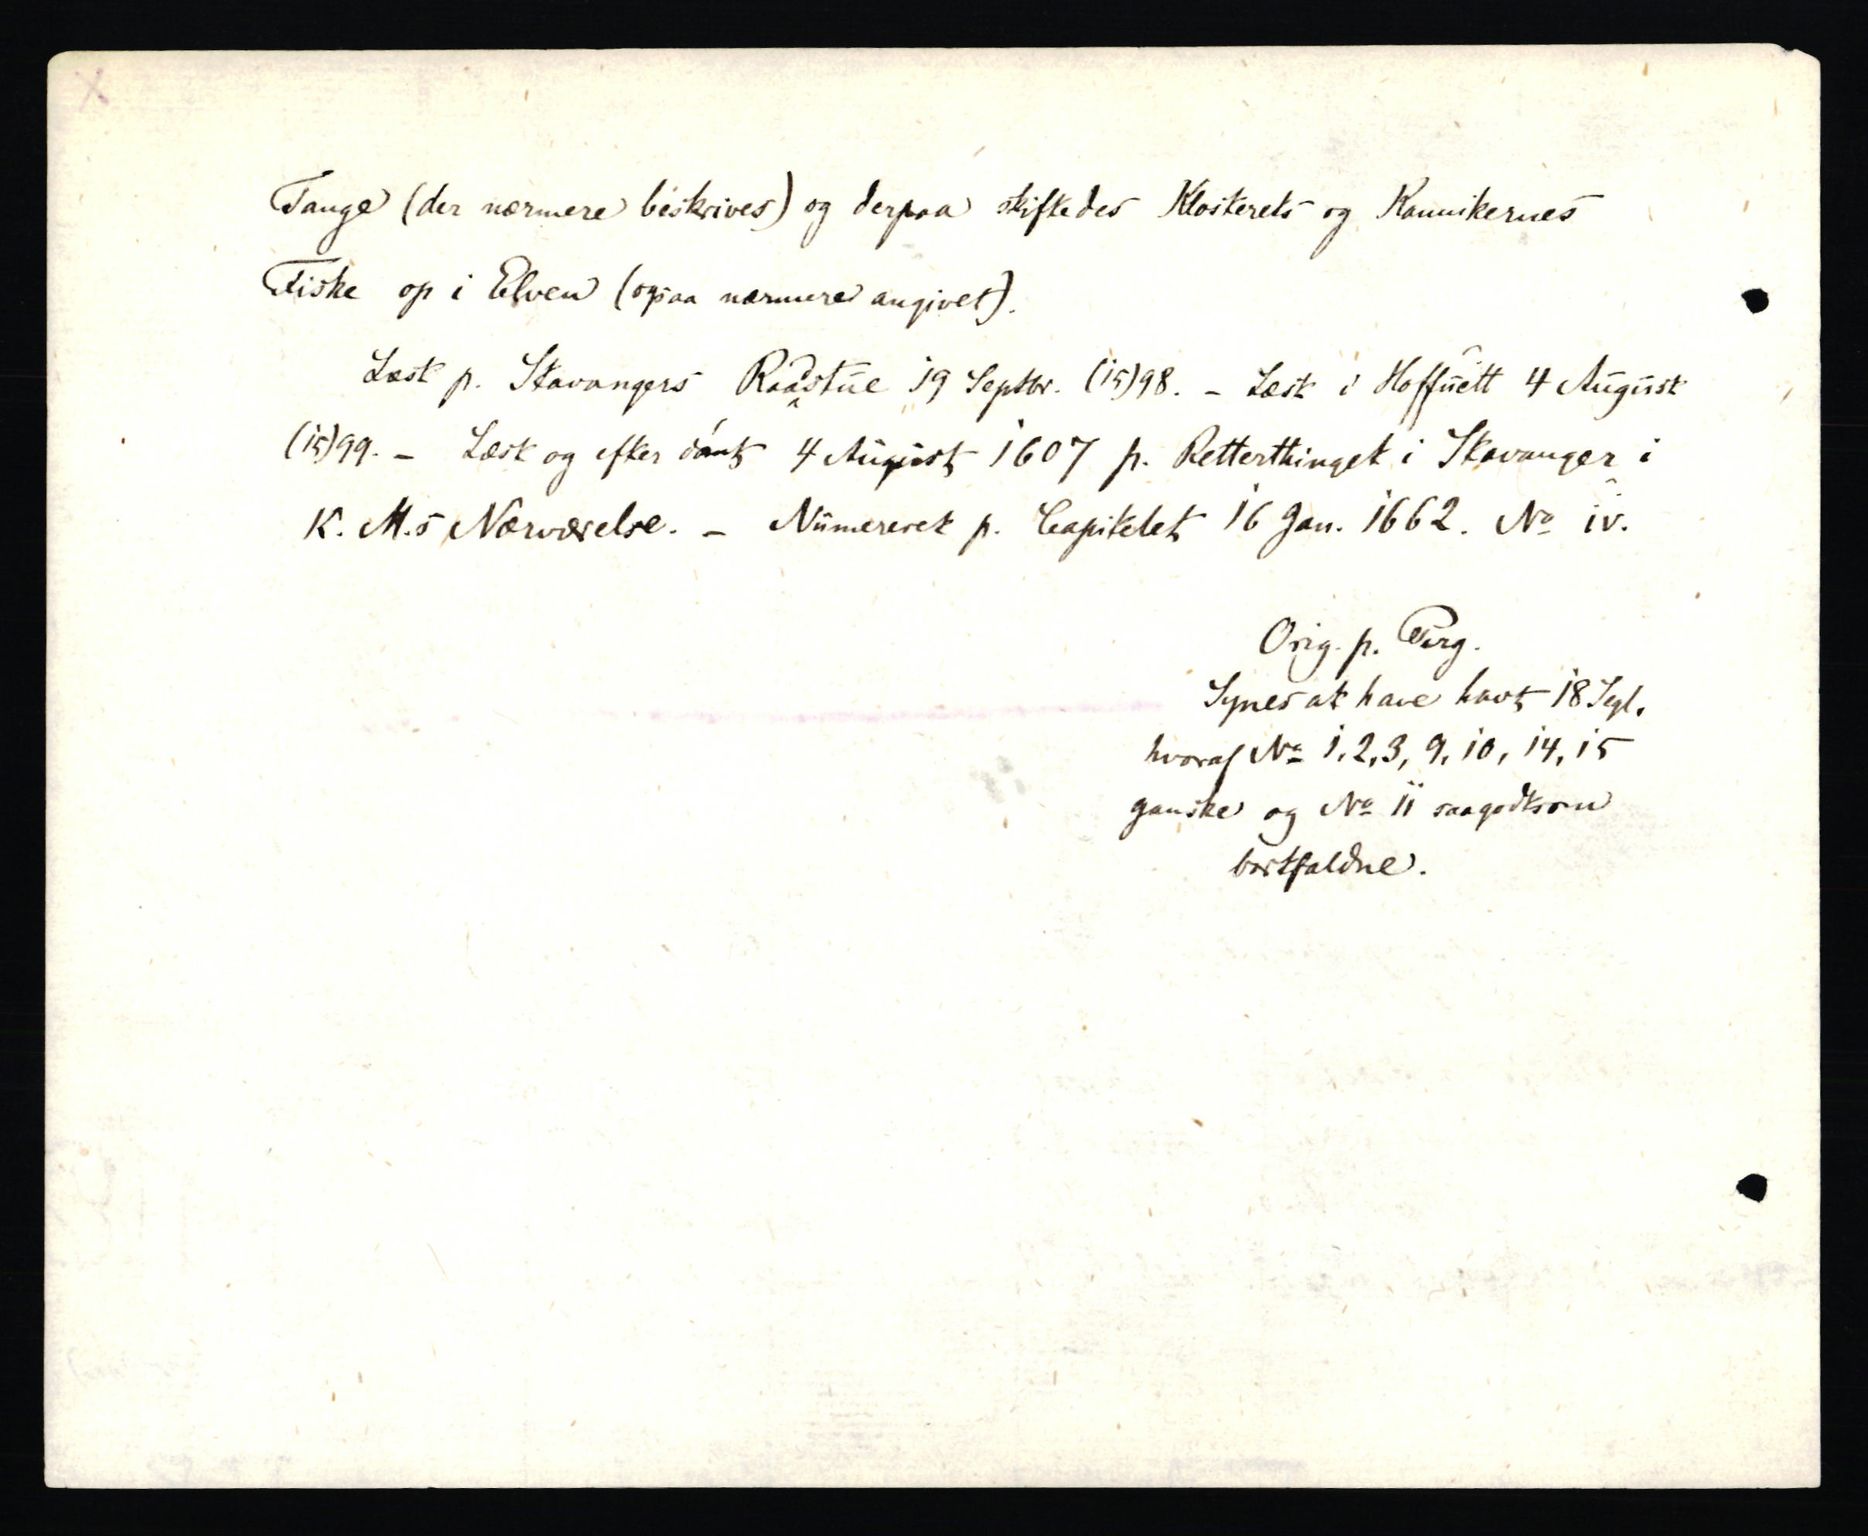 Tange (der nærmere beskrives) og derpaa skiftedes Klosterets og Kannikernes
Fiske op i Elven (ogsaa nærmere angivet).
Læst p. Stavangers Raadstue 19 Septbr. (15)98. – Læst i Hoffuett 4 August
(15)99. – Læst og efter dømt 4 August 1607 p. Retterthinget i Stavanger i
K. M.s Nærværelse. – Numereret p. Capitelet 16 Jan. 1662. No iv.
Orig. p. Perg.
Synes at have havt 18 Segl,
hvoraf No 1, 2, 3, 9, 10, 14, 15
ganske og No 11 saagodtsom
bortfaldne.